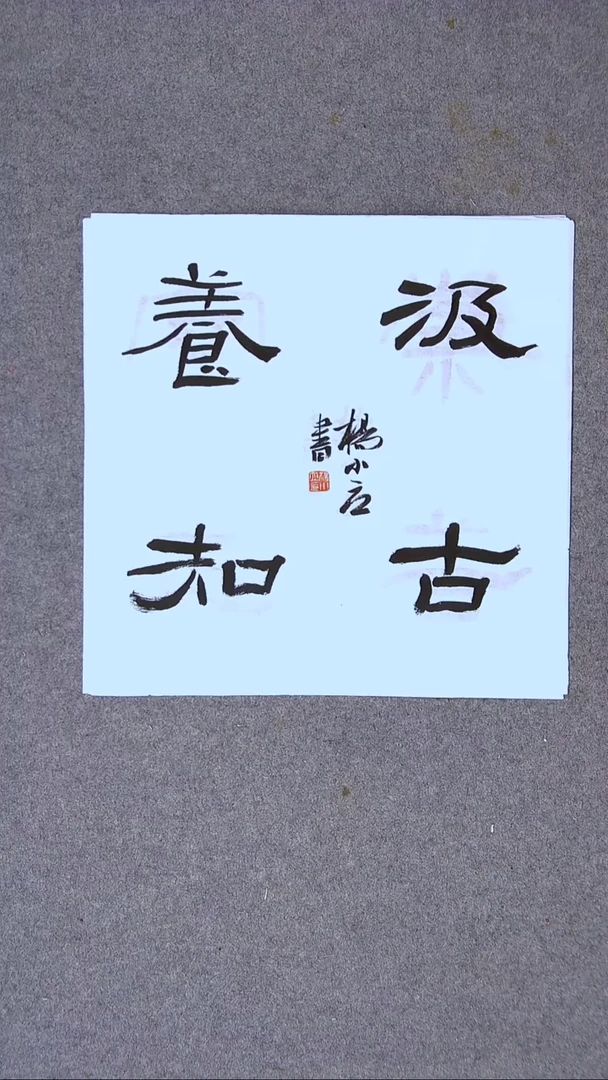 汲古
養知
楊小石
書